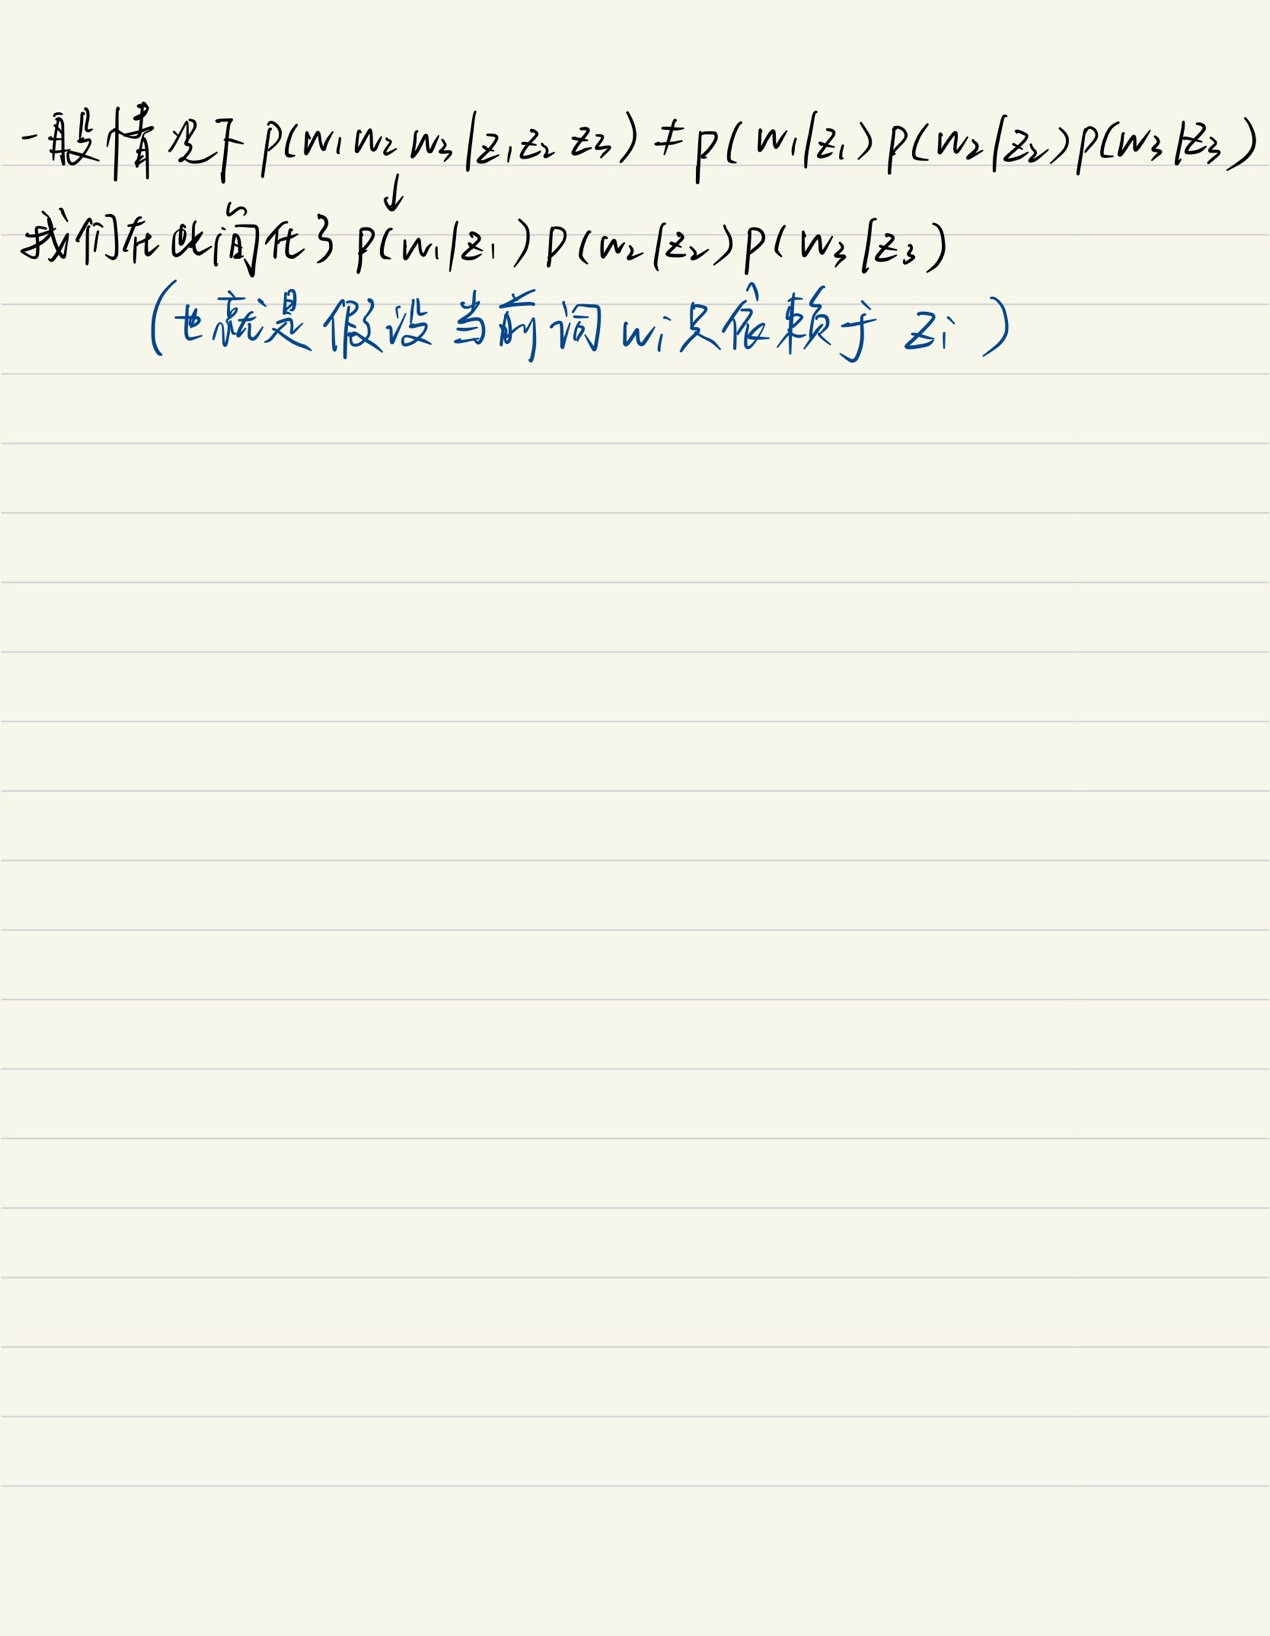 一般情况下 P(w₁w₂w₃|z₁z₂z₃) ≠ p(w₁|z₁)P(w₂|z₂)P(w₃|z₃)
↓
我们在此简化了 P(w₁|z₁)P(w₂|z₂)P(w₃|z₃)
(也就是假设当前词 wᵢ只依赖于 zᵢ)